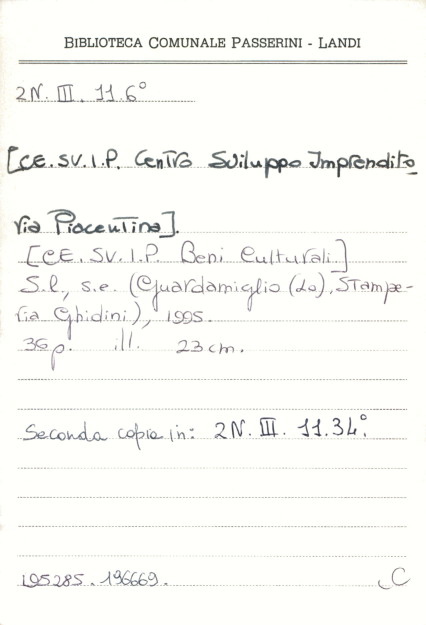 BIBLIOTECA COMUNALE PASSERINI - LANDI
2N. III. 11.6°
[CE.SV.I.P. Centro Sviluppo Imprendito
ria Piacentina].
[CE.SV.I.P. Beni Culturali.]
S.l., s.e. (Guardamiglio (Lo), Stampe-
ria Ghidini), 1995.
36 p. ill. 23 cm.
Seconda copia in: 2N. III. 11.34°.
195285. 196669. C